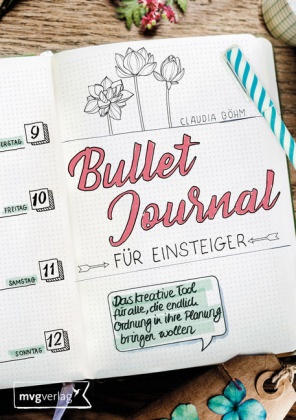 CLAUDIA BÖHM
Bullet
Journal
FÜR EINSTEIGER
9
ERSTAG
10
FREITAG
11
SAMSTAG
12
SONNTAG
Das kreative Tool
für alle, die endlich
Ordnung in ihre Planung
bringen wollen
mvgverlag